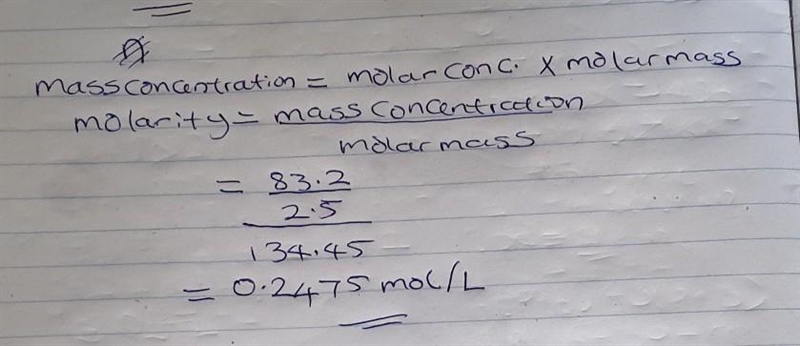 mass concentration = molar conc. x molar mass
molarity = mass concentration
molar mass
= 83.2
2.5
134.45
= 0.2475 mol/L